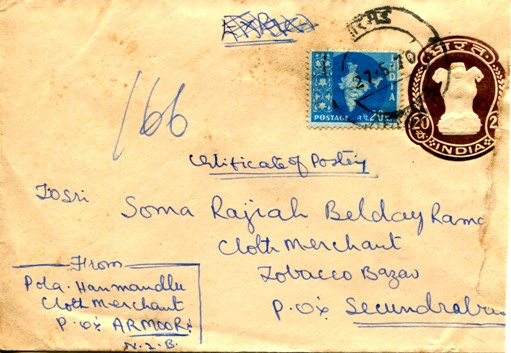 166
27.5.70
INDIA
POSTAGE
भारत
20 2
INDIA
Certificate of Posting
To Sri
Soma Rajiah Belday Rama
Cloth Merchant
Tobacco Bazar
P. O x Secundraba
From
Pola. Hanmandlu
Cloth Merchant
P. O x ARMOOR
N.Z.B.